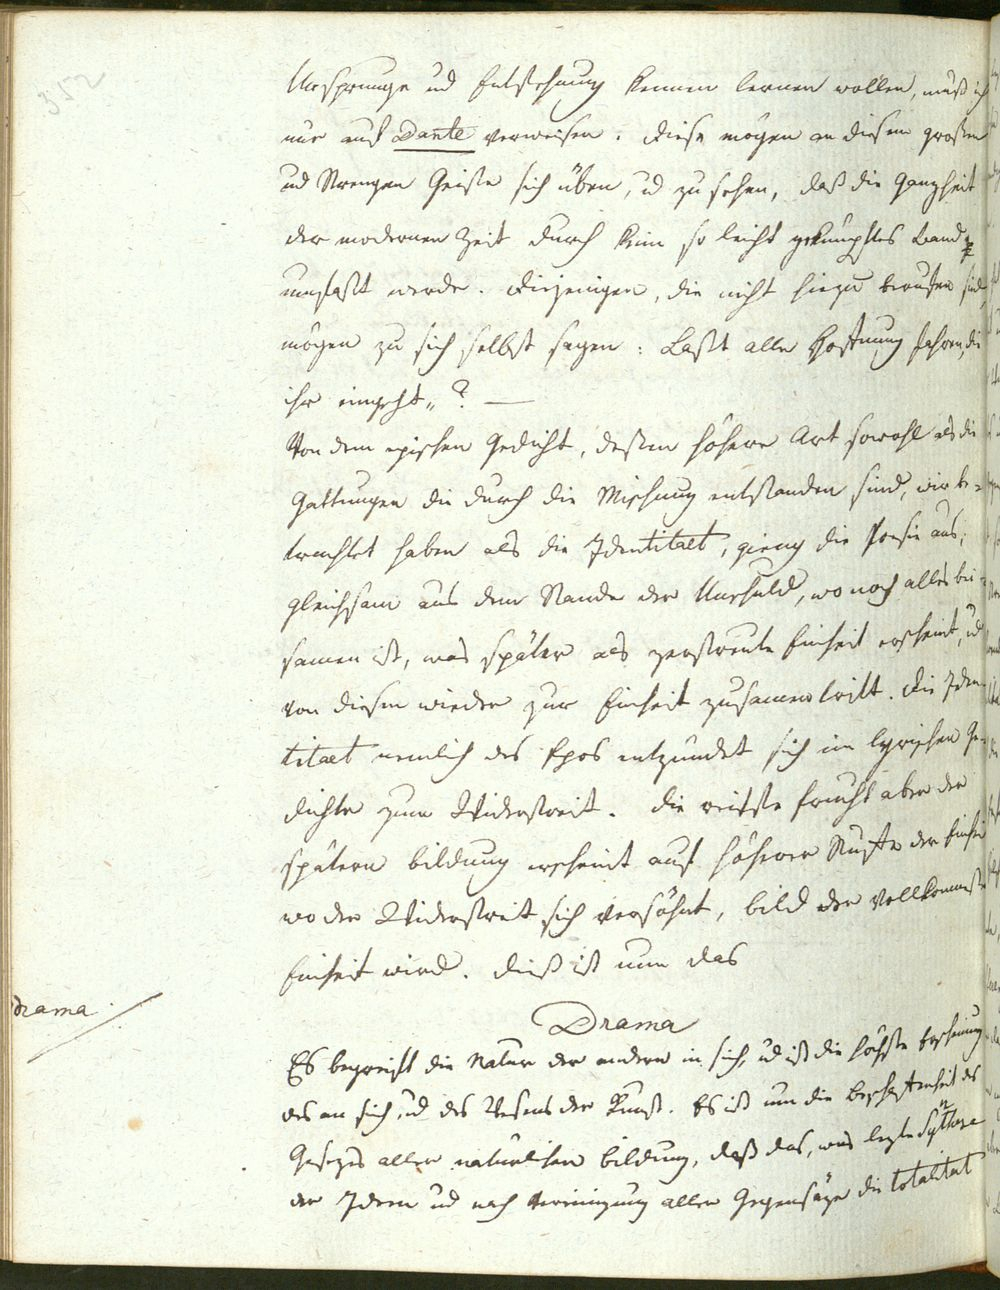 352
Ursprunge ud Entstehung kennen lernen wollen, muß ich
nur auf Dante verweisen. Diese mögen an diesem großen
ud strengen Geiste sich üben, ud zu sehen, daß die Ganzheit
der modernen Zeit durch kein so leicht geknüpftes Band
umfaßt werde. Diejenigen, die nicht hiezu berufen sind,
mögen zu sich selbst sagen: Laßt alle Hoffnung fahren, die
ihr eingeht„ ? —
Von dem epischen Gedicht, dessen höhere Art sowohl als die
Gattungen die durch die Mischung entstanden sind, wir be-
trachtet haben als die Identitaet, gieng die Poesie aus;
gleichsam aus dem Stande der Unschuld, wo noch alles bei-
samen ist, was später als zerstreute Einheit erscheint, ud
von diesen wieder zur Einheit zusamentritt. Die Iden-
titaet nemlich des Epos entzündet sich im lyrischen Ge-
dichte zum Widerstreit. Die reifste Frucht aber der
spätern Bildung erscheint auf höherer Stuffe der Einheit
wo der Widerstreit sich versöhnt, Bild der vollkommensten
Einheit wird. Dieß ist nun das
Drama
Drama
Es begreift die Natur der andern in sich, ud ist die höchste Erscheinung
des an sich, ud des Wesens der Kunst. Es ist nun die Beschaffenheit des
Gesezes aller natürlichen Bildung, daß das, was lezte Synthese
der Ideen ud nach Vereinigung aller Gegensäze die totalitaet